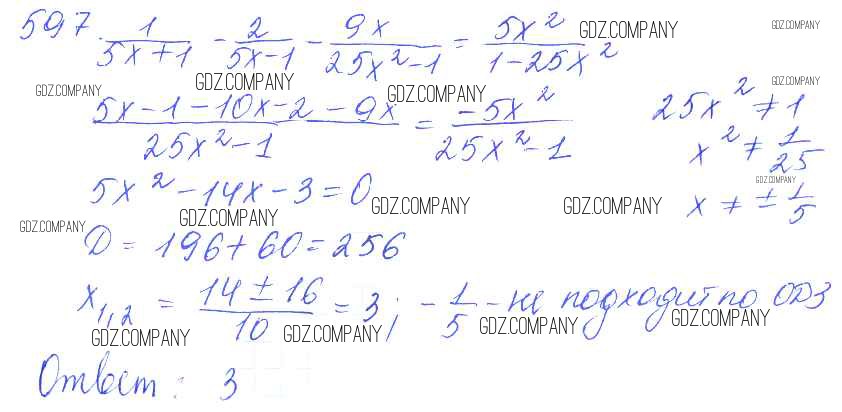 597. 1/(5x+1) - 2/(5x-1) - 9x/(25x²-1) = 5x²/(1-25x²) GDZ.COMPANY GDZ.COMPANY
GDZ.COMPANY GDZ.COMPANY GDZ.COMPANY GDZ.COMPANY
(5x-1-10x-2-9x)/(25x²-1) = -5x²/(25x²-1) 25x² ≠ 1
x² ≠ 1/25
GDZ.COMPANY
5x²-14x-3=0 x ≠ ± 1/5
GDZ.COMPANY GDZ.COMPANY GDZ.COMPANY GDZ.COMPANY
D = 196+60=256
x₁,₂ = (14±16)/10 = 3; -1/5 - не подходит по ОДЗ
GDZ.COMPANY GDZ.COMPANY GDZ.COMPANY GDZ.COMPANY
Ответ: 3